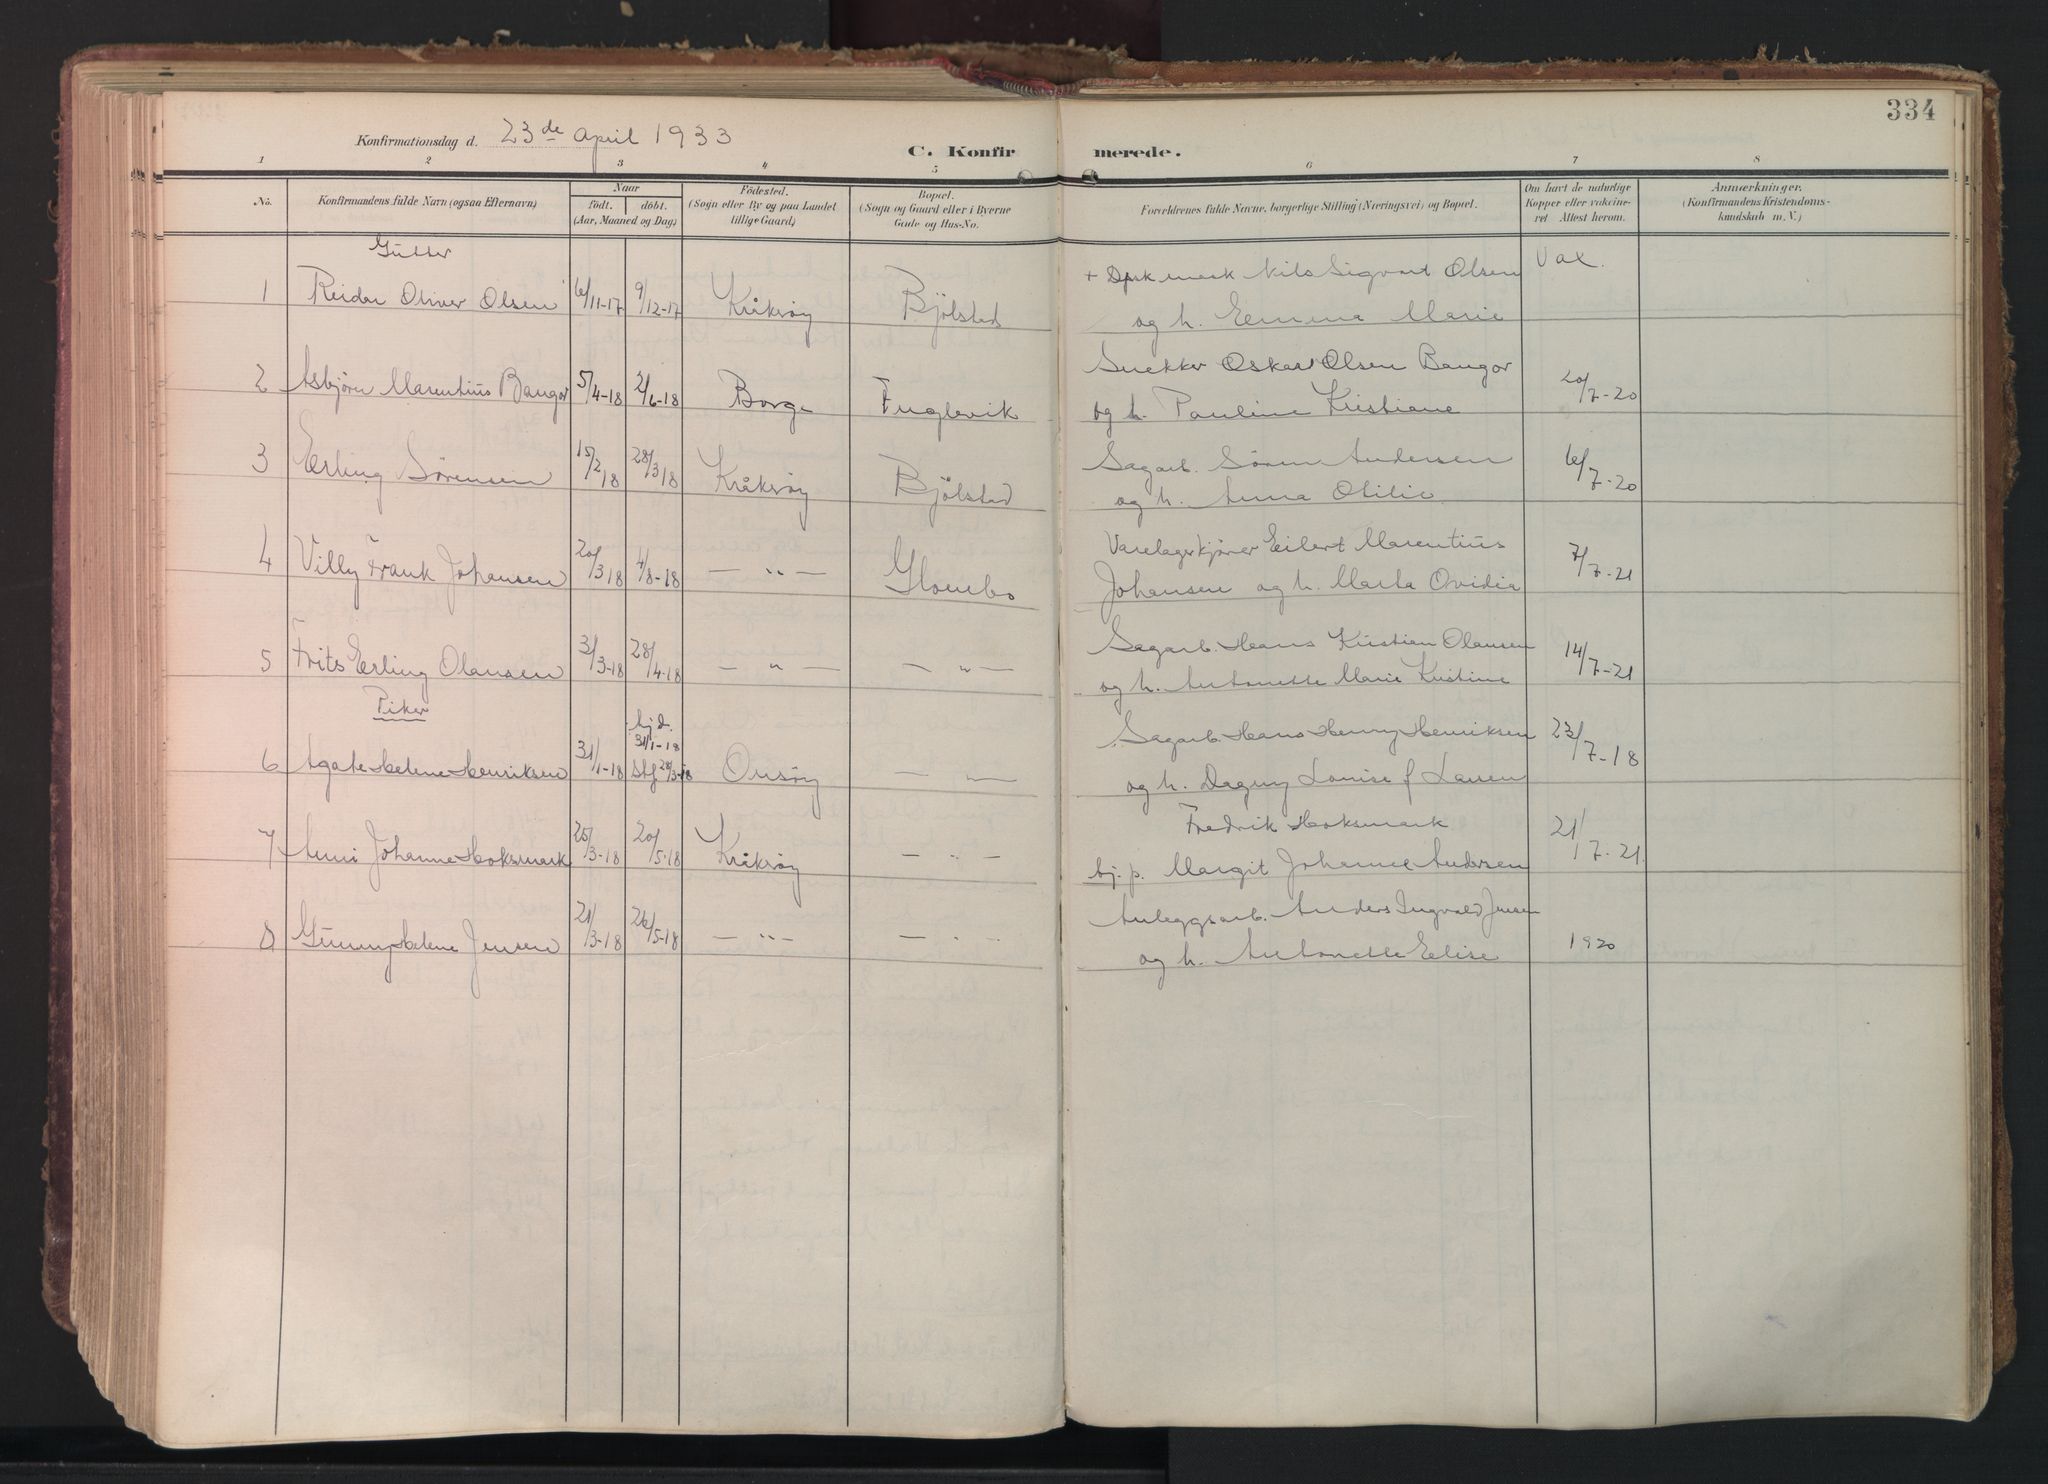 334
Konfirmationsdag d. 23de April 1933
C. Konfirmerede.
1 2 3 4 5 6 7 8
No. Konfirmandens fulde Navn (ogsaa Efternavn) Naar födt. döbt. (Aar, Maaned og Dag) Födested. (Sogn eller By og paa Landet tillige Gaard) Bopæl. (Sogn og Gaard eller i Byerne Gade og Hus-No. Forældrenes fulde Navne, borgerlige Stilling (Næringsvei) og Bopæl. Om havt de naturlige Kopper eller vaccineret Attest herom. Anmærkninger. (Konfirmandens Kristendomskundskab m. V.)
Gutter
1 Reidar Oliver Olsen 6/11-17 9/12-17 Kråkröy Bjölstad + Nils Sigvart Olsen Vax.
og h. Emma Marie
2 Asbjörn Marentius Bangor 5/4-18 2/6-18 Borge Fuglevik Snekker Oskar Olsen Bangor 20/7-20
og h. Pauline Kristiane
3 Erling Sörensen 15/2 18 28/3 18 Kråkröy Bjölstad Sagarb. Sören Andersen 6/7-20
og h. Anna Otilie
4 Villy Frank Johansen 20/3 18 4/8-18 — " — Glombo Varelagerkjörer Eilert Marentius 7/7-21
Johansen og h. Marta Ovidia
5 Frits Erling Olausen 31/3-18 28/4-18 — " — — " — Sagarb. Hans Kristian Olausen 14/7-21
og h. Antonette Marie Kristine
Piker
6 Agate Helene Henriksen 31/1-18 hjd. 31/1-18 Stf 28/3-18 Onsöy — " — Sagarb. Hans Henry Henriksen 23/7-18
og h. Dagny Lovise f Larsen
7 Anni Johanne Hoksmark 25/3-18 20/5-18 Kråkröy — " — Fredrik Hoksmark 21/7-21.
hj. p. Margit Johanne Andersen
8 Gunny Helene Jensen 21/3-18 26/5-18 — " — — " — Anleggsarb. Anders Ingvald Jensen 1920
og h. Antonette Elise